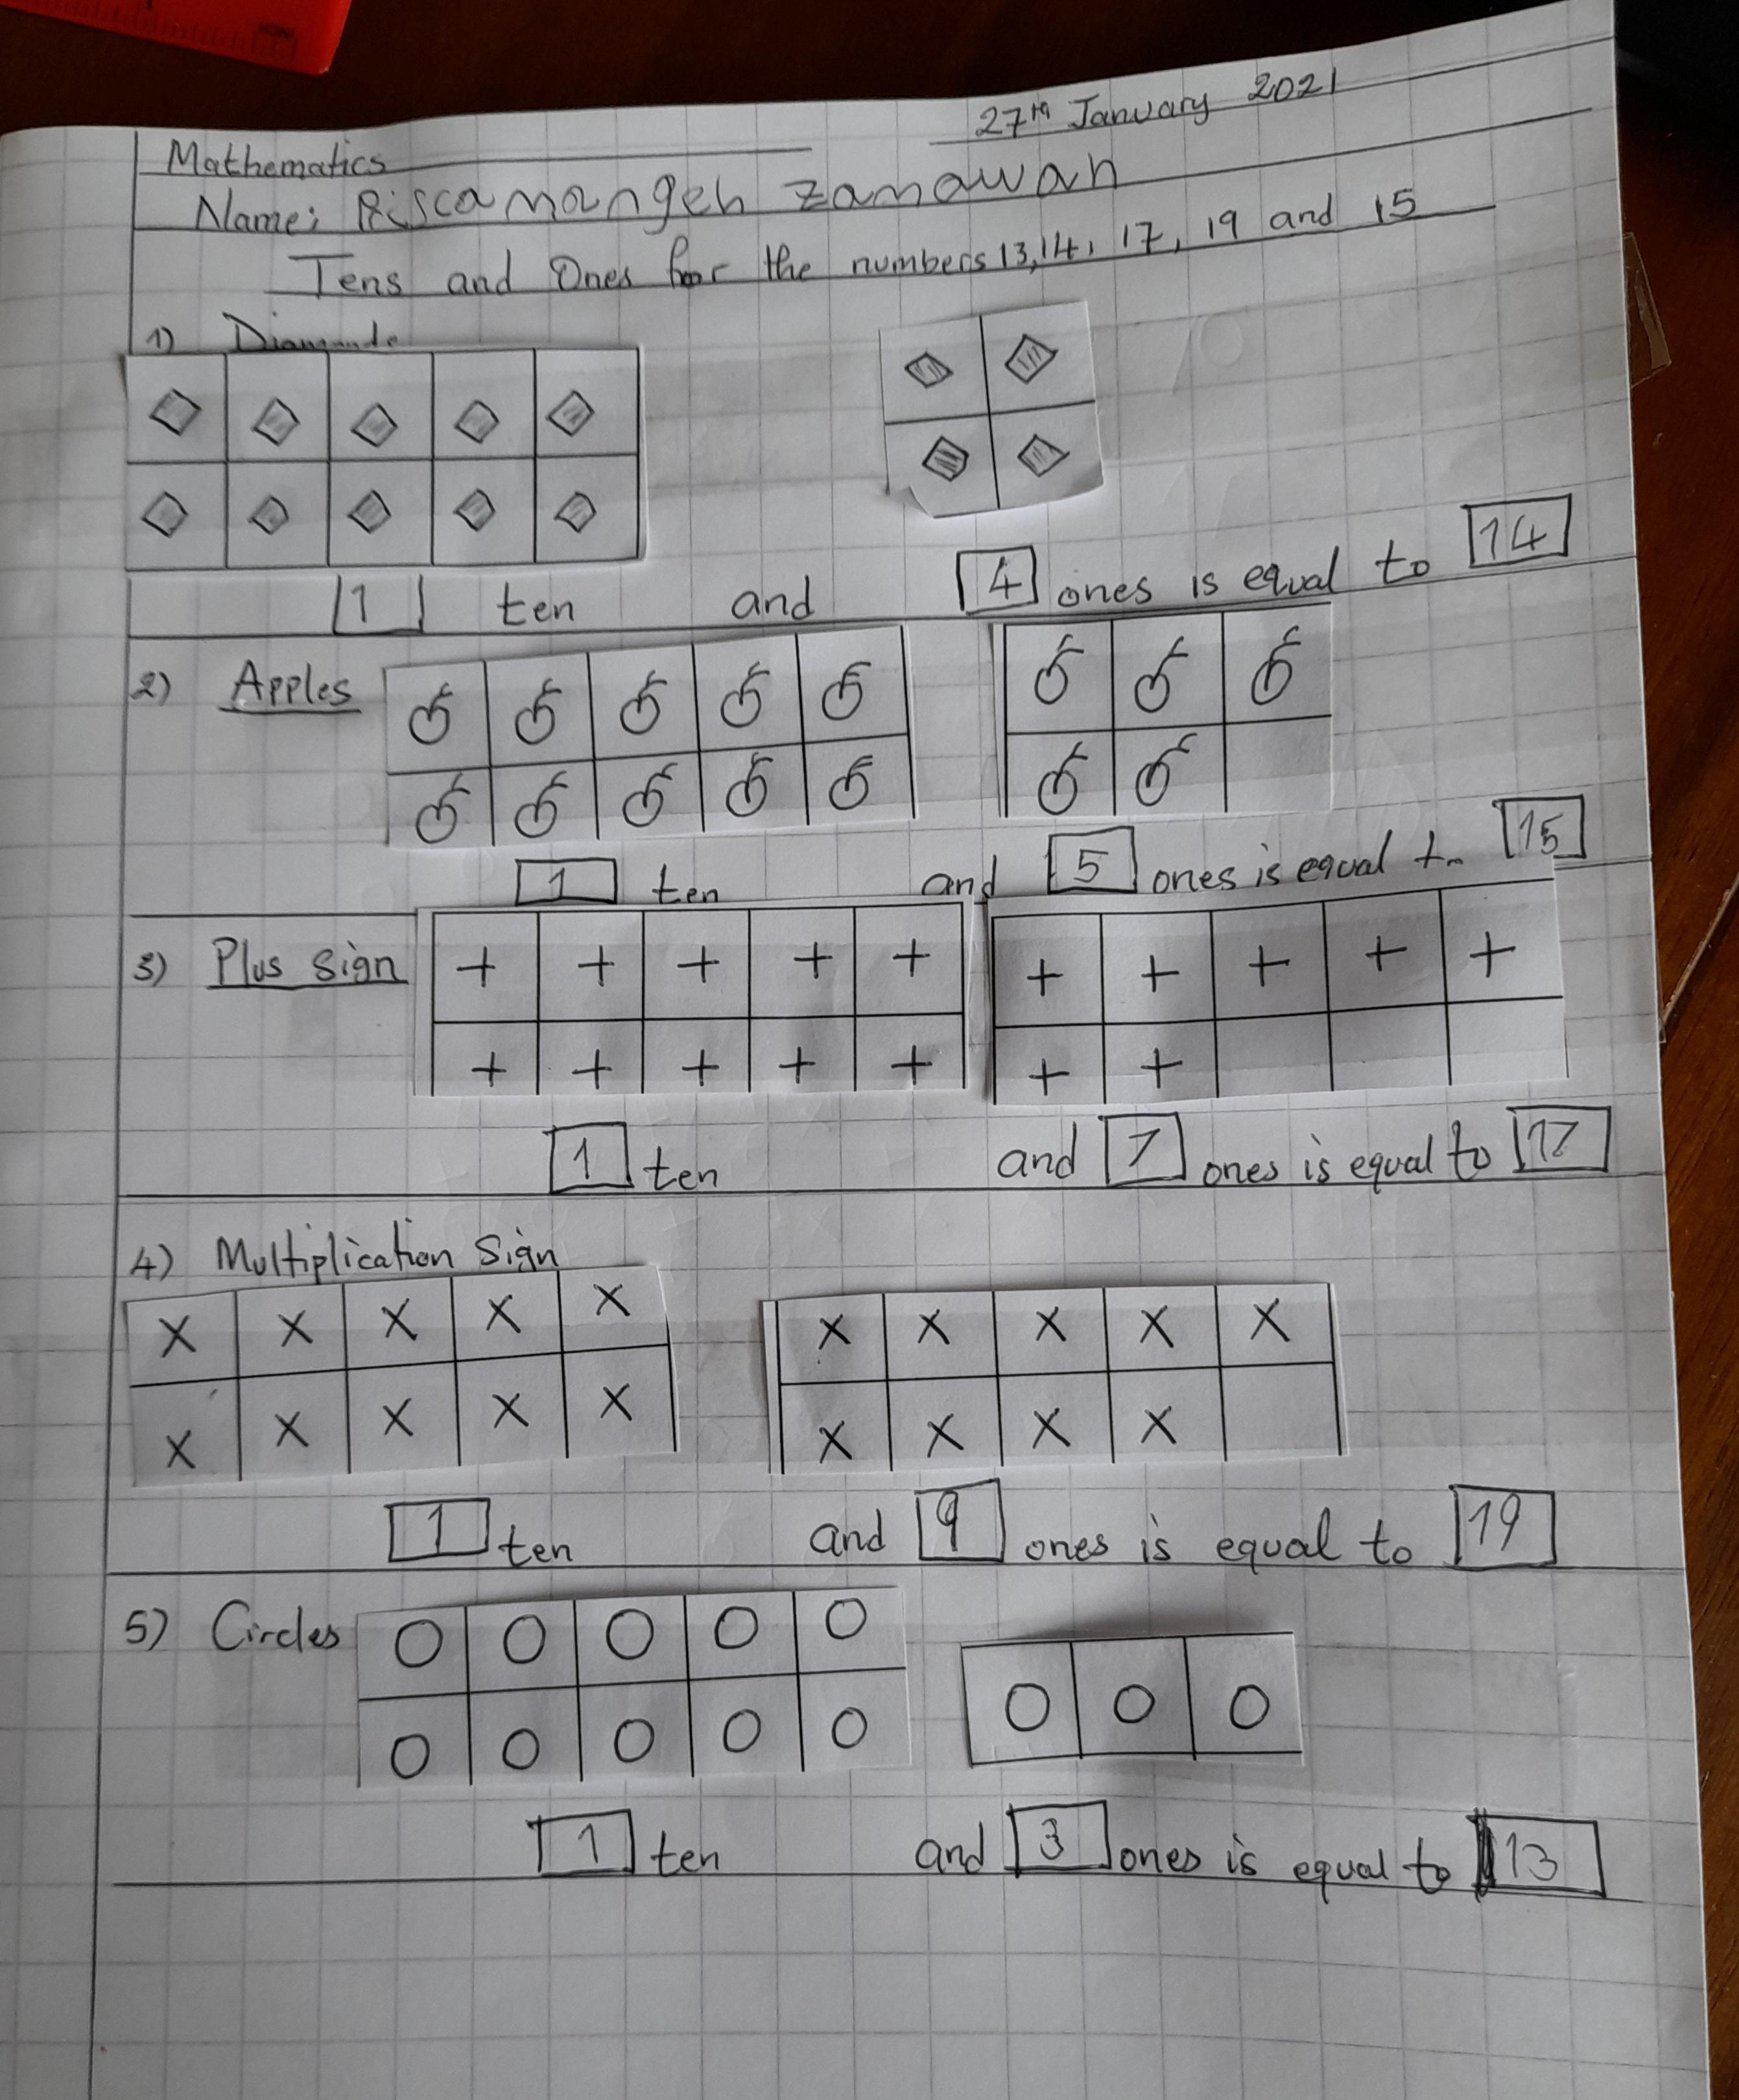 27th January 2021
Mathematics
Name: Riscamangeh Zanawan
Tens and Ones for the numbers 13, 14, 17, 19 and 15
1) Diamonds
1 ten and 4 ones is equal to 14
2) Apples
1 ten and 5 ones is equal to 15
3) Plus Sign
+ + + + + + + + + +
+ + + + + + +
1 ten and 7 ones is equal to 17
4) Multiplication Sign
X X X X X X X X X X
X X X X X X X X X
1 ten and 9 ones is equal to 19
5) Circles
1 ten and 3 ones is equal to 13